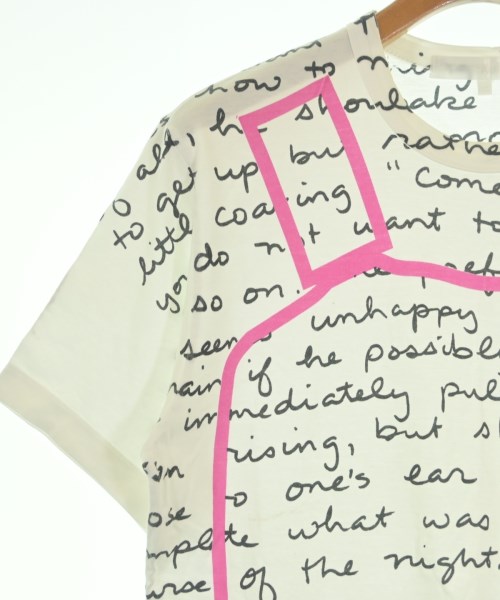 how to
old, he should take
to get up but rather
little coaxing "Come
you do not want to
so on. pref
seem unhappy
if he possible
immediately pul
rising, but s
to one's ear
ose
mplete what was
urse of the night.